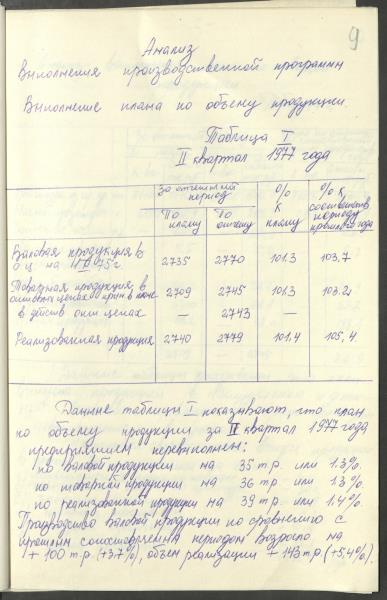 9
Анализ
Выполнения производственной программы
Выполнение плана по объему продукции
Таблица I
II квартал 1977 года
За отчетный период
По плану
По отчету
% к плану
% к соответств. периоду прошлого года
Валовая продукция в
о ц на 1975 г. 2735 2770 101.3 103.7
Товарная продукция, в
оптовых ценах 2709 2745 101.3 103.2
в действ опт ценах — 2743 — —
Реализованная продукция 2740 2779 101.4 105.4
Данные таблицы I показывают, что план
по объему продукции за II квартал 1977 года
предприятием перевыполнен:
по валовой продукции на 35 т.р. или 1.3%
по товарной продукции на 36 т.р. или 1.3%
по реализованной продукции на 39 т.р. или 1.4%
Производство валовой продукции по сравнению с
прошлым периодом возросло на
+ 100 т.р. (+3.7%), объем реализации + 143 т.р (+5,4%).